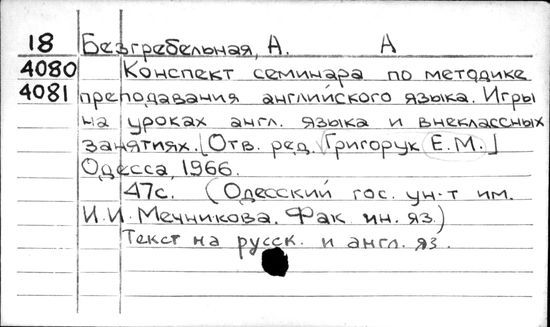 18 Безгребельная, А. А
4080 Конспект семинара по методике
4081 преподавания английского языка. Игры
на уроках англ. языка и внеклассных
занятиях. [Отв. ред. Григорук Е.М.]
Одесса, 1966.
47с. (Одесский гос. ун-т им.
И.И. Мечникова. Фак ин. яз.)
Текст на русск. и англ. яз.